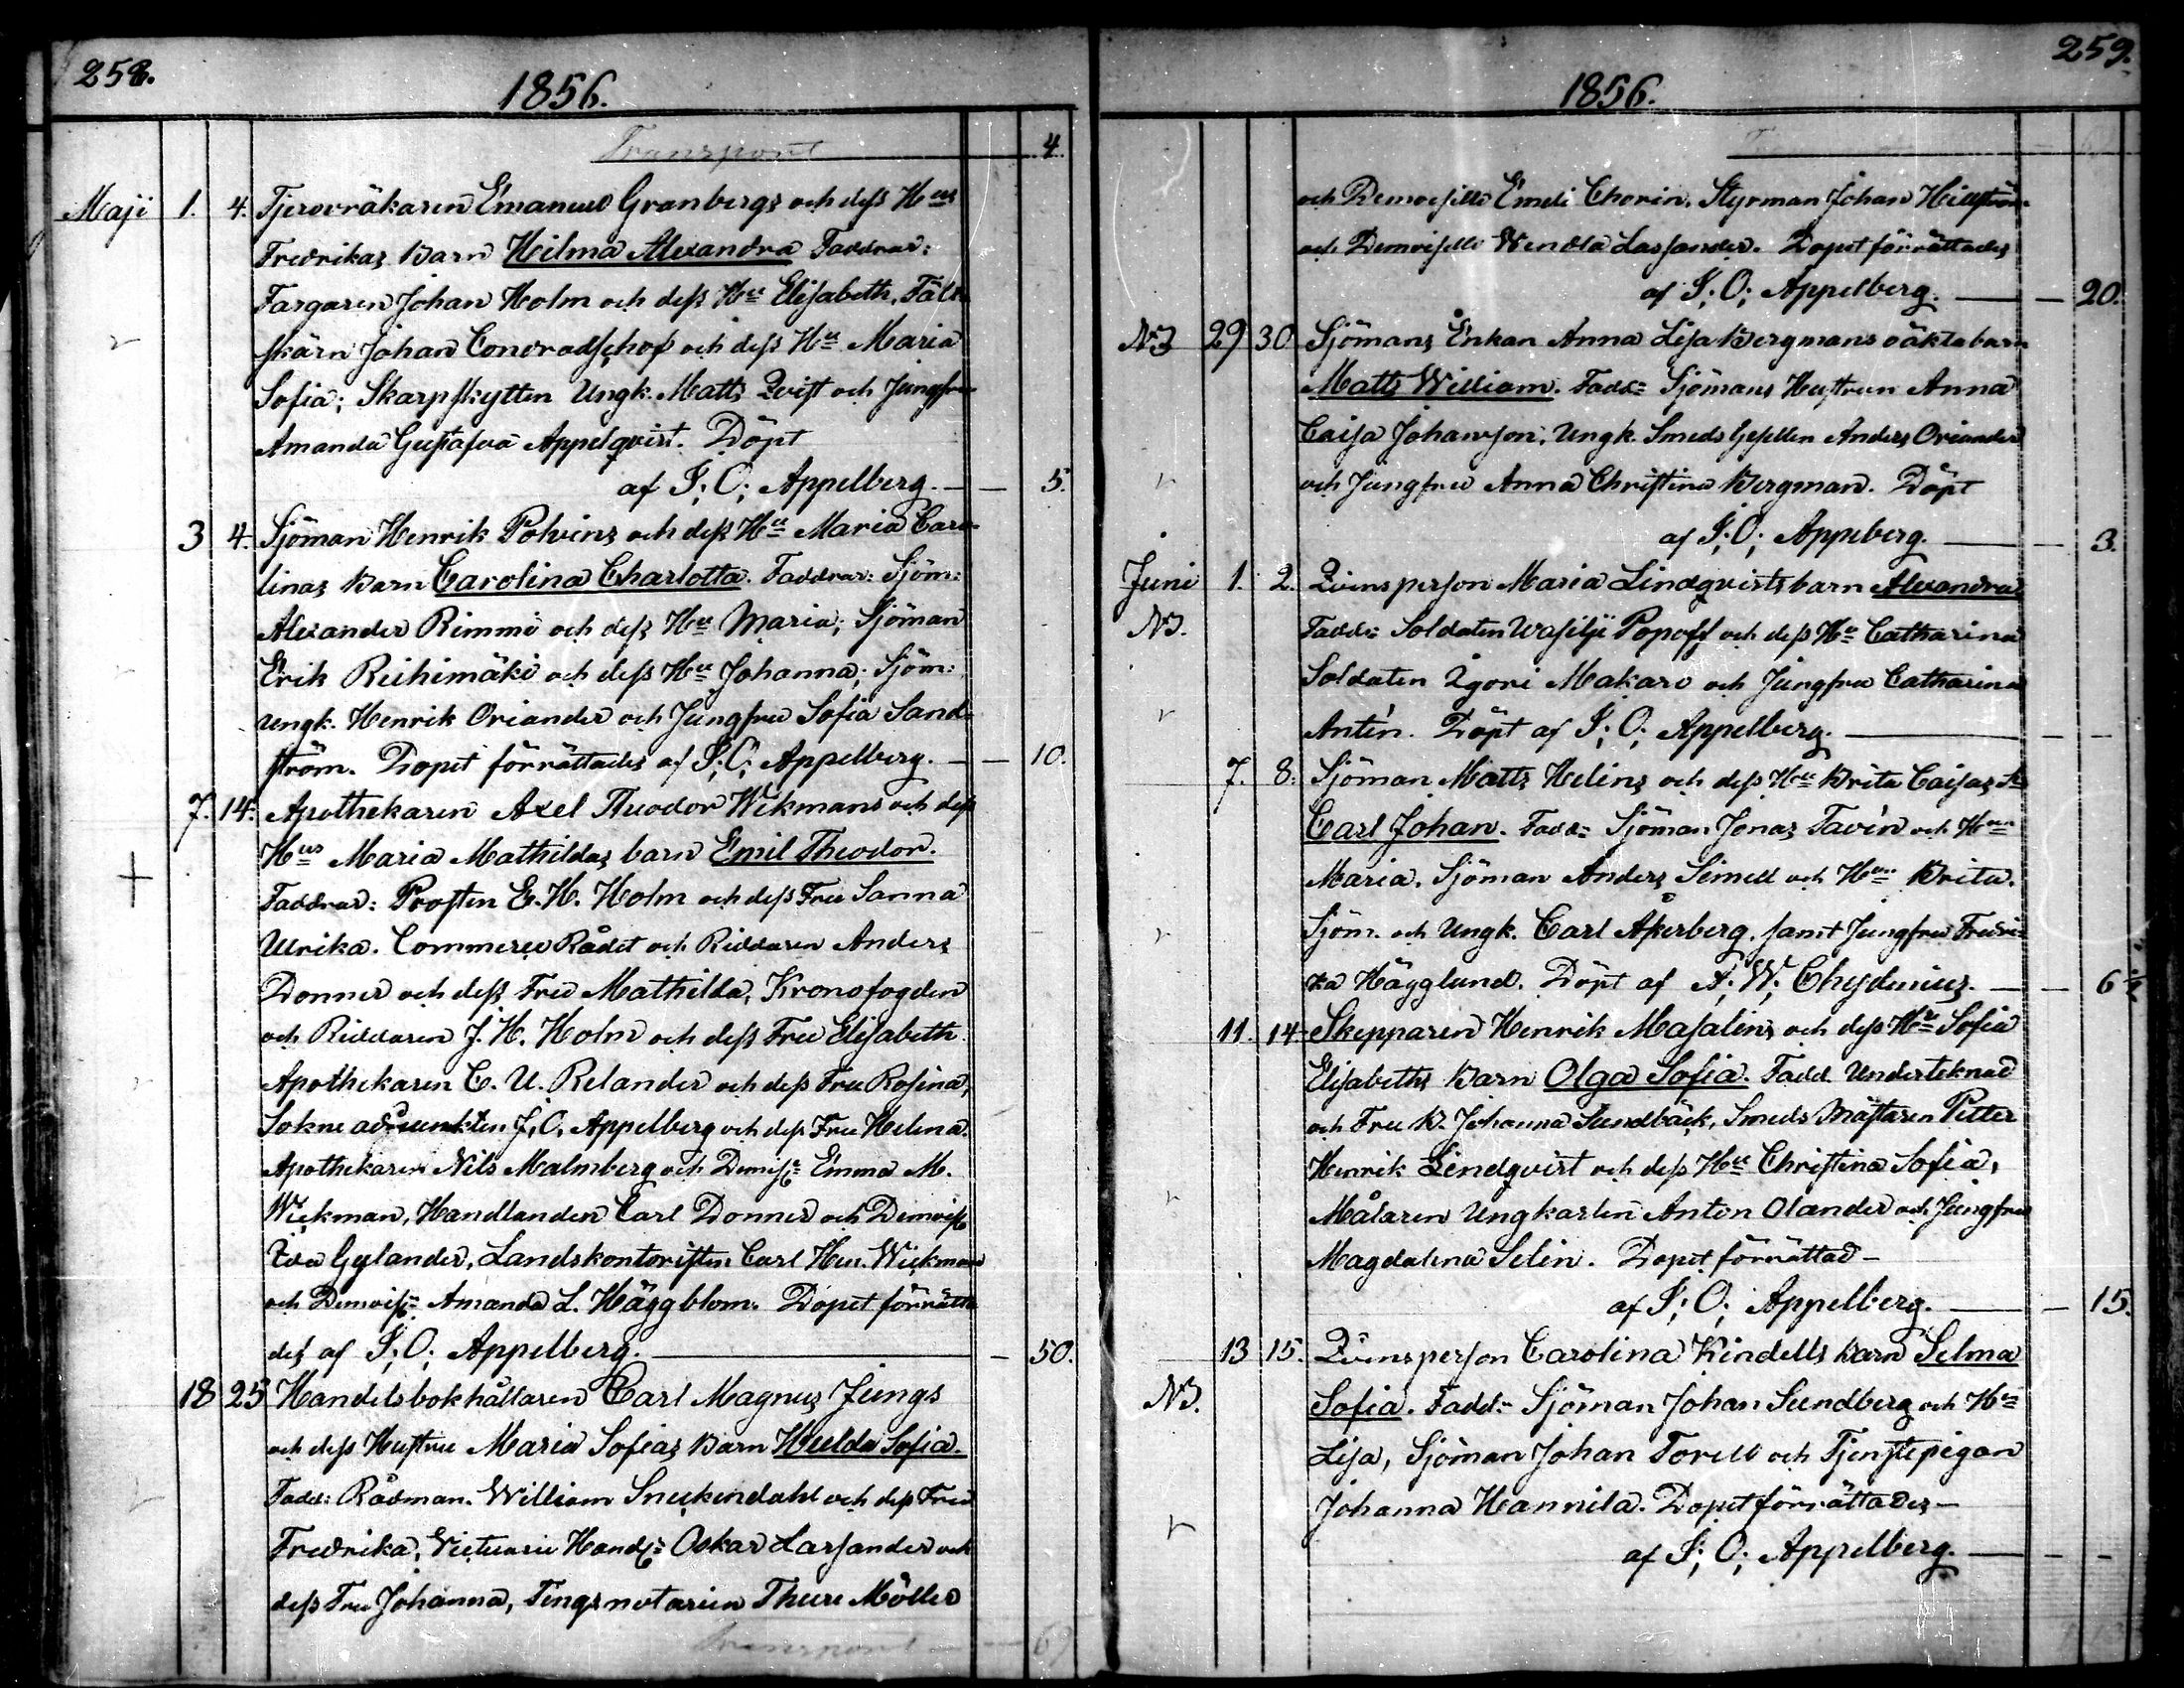 258.
1856.
Transport 4.
Maji 1. 4. Tjervräkaren Emanuel Granbergs och dess Hus
Fredrikas Barn Hilma Alexandra Faddrar:
Färgaren Johan Holm och dess Hu Elisabeth, Fält
skärn Johan Conradschof och dess Hu Maria
Sofia; Skarpskytten Ungk. Matts Qvist och Jungfru
Amanda Gustafva Appelqvist. Döpt
af J; O; Appelberg. — — 5.
3 4. Sjöman Henrik Polvins och dess Hu Maria Caro-
linas Barn Carolina Charlotta. Faddrar: Sjöm:
Alexander Rimmi och dess Hu Maria; Sjöman
Erik Reihimäki och dess Hu Johanna; Sjöm:
Ungk. Henrik Oriander och Jungfru Sofia Sand-
ström. Dopet förrättades af J; O; Appelberg. — — 10.
7. 14. Apothekaren Axel Theodor Wikmans och dess
Hus Maria Mathildas barn Emil Theodor.
Faddrar: Prosten E. H. Holm och dess Fru Sanna
Ulrika. Commerce Rådet och Riddaren Anders
Donner och dess Fru Mathilda, Kronofogden
och Riddaren J. H. Holm och dess Fru Elisabeth
Apothekaren C. U. Relander och dess Fru Rosina,
Sokneadjunkten J. O. Appelberg och dess Fru Helena.
Apothekaren Nils Malmberg och Demlle Emma M.
Wickman, Handlanden Carl Donner och Demois
Eva Gylander, Landskontoristen Carl Hen. Wickman
och Demois: Amanda L. Häggblom. Dopet förrätta
des af J; O; Appelberg. — — 50.
18 25 Handelsbokhållaren Carl Magnus Jungs
och dess Hustru Maria Sofias Barn Hulda Sofia.
Fadd: Rådman. William Sneckendahl och dess Fru
Fredrika, Victualie Handl: Oskar Lassander och
dess Fru Johanna, Tingsnotarien Thure Möller
Transport — 69
259.
1856.
och Demoiselle Emeli Chorin. Styrman Johan Hellström
och Demoiselle Wendla Lassander. Dopet förrättades
af J; O; Appelberg. — — 20.
N3 29 30 Sjömans Enkan Anna Lisa Bergmans oäkta barn
Matts William. Fadd: Sjömans Hustrun Anna
Caisa Johansson, Ungk. Smeds Gesellen Anders Oriander
och Jungfru Anna Christina Bergman. Döpt
af J; O; Appelberg. — — 3.
Juni 1. 2. Qvinsperson Maria Lindqvists barn Alexandra
N3. Fadd: Soldaten Wasilji Popoff och dess Hu Catharina
Soldaten Igori Makaro och Jungfru Catharina
Antén. Döpt af J; O; Appelberg. — — —
7. 8. Sjöman Matts Helins och dess Hu Brita Caisas
Carl Johan. Fadd: Sjöman Jonas Tavén och Hu
Maria. Sjöman Anders Simell och Hu Brita.
Sjöm. och Ungk. Carl Åkerberg, samt Jungfru Fredri-
ka Hägglund. Döpt af A; W; Chydenius. — — 6 ½
11. 14. Skepparen Henrik Masalins och dess Hu Sofia
Elisabeths Barn Olga Sofia. Fadd. Underteknad
och Fru B. Johanna Sundbäck, Smeds Mästaren Petter
Henrik Lindqvist och dess Hu Christina Sofia,
Målaren Ungkarlen Anton Olander och Jungfru
Magdalena Selin. Dopet förrättad —
af J; O; Appelberg. — — 15.
13 15. Qvinsperson Carolina Kindells barn Selma
N3. Sofia. Fadd: Sjöman Johan Sundberg och Hu
Lisa, Sjöman Johan Torell och Tjenstepigan
Johanna Hannila. Dopet förrättades —
af J; O; Appelberg. — — —